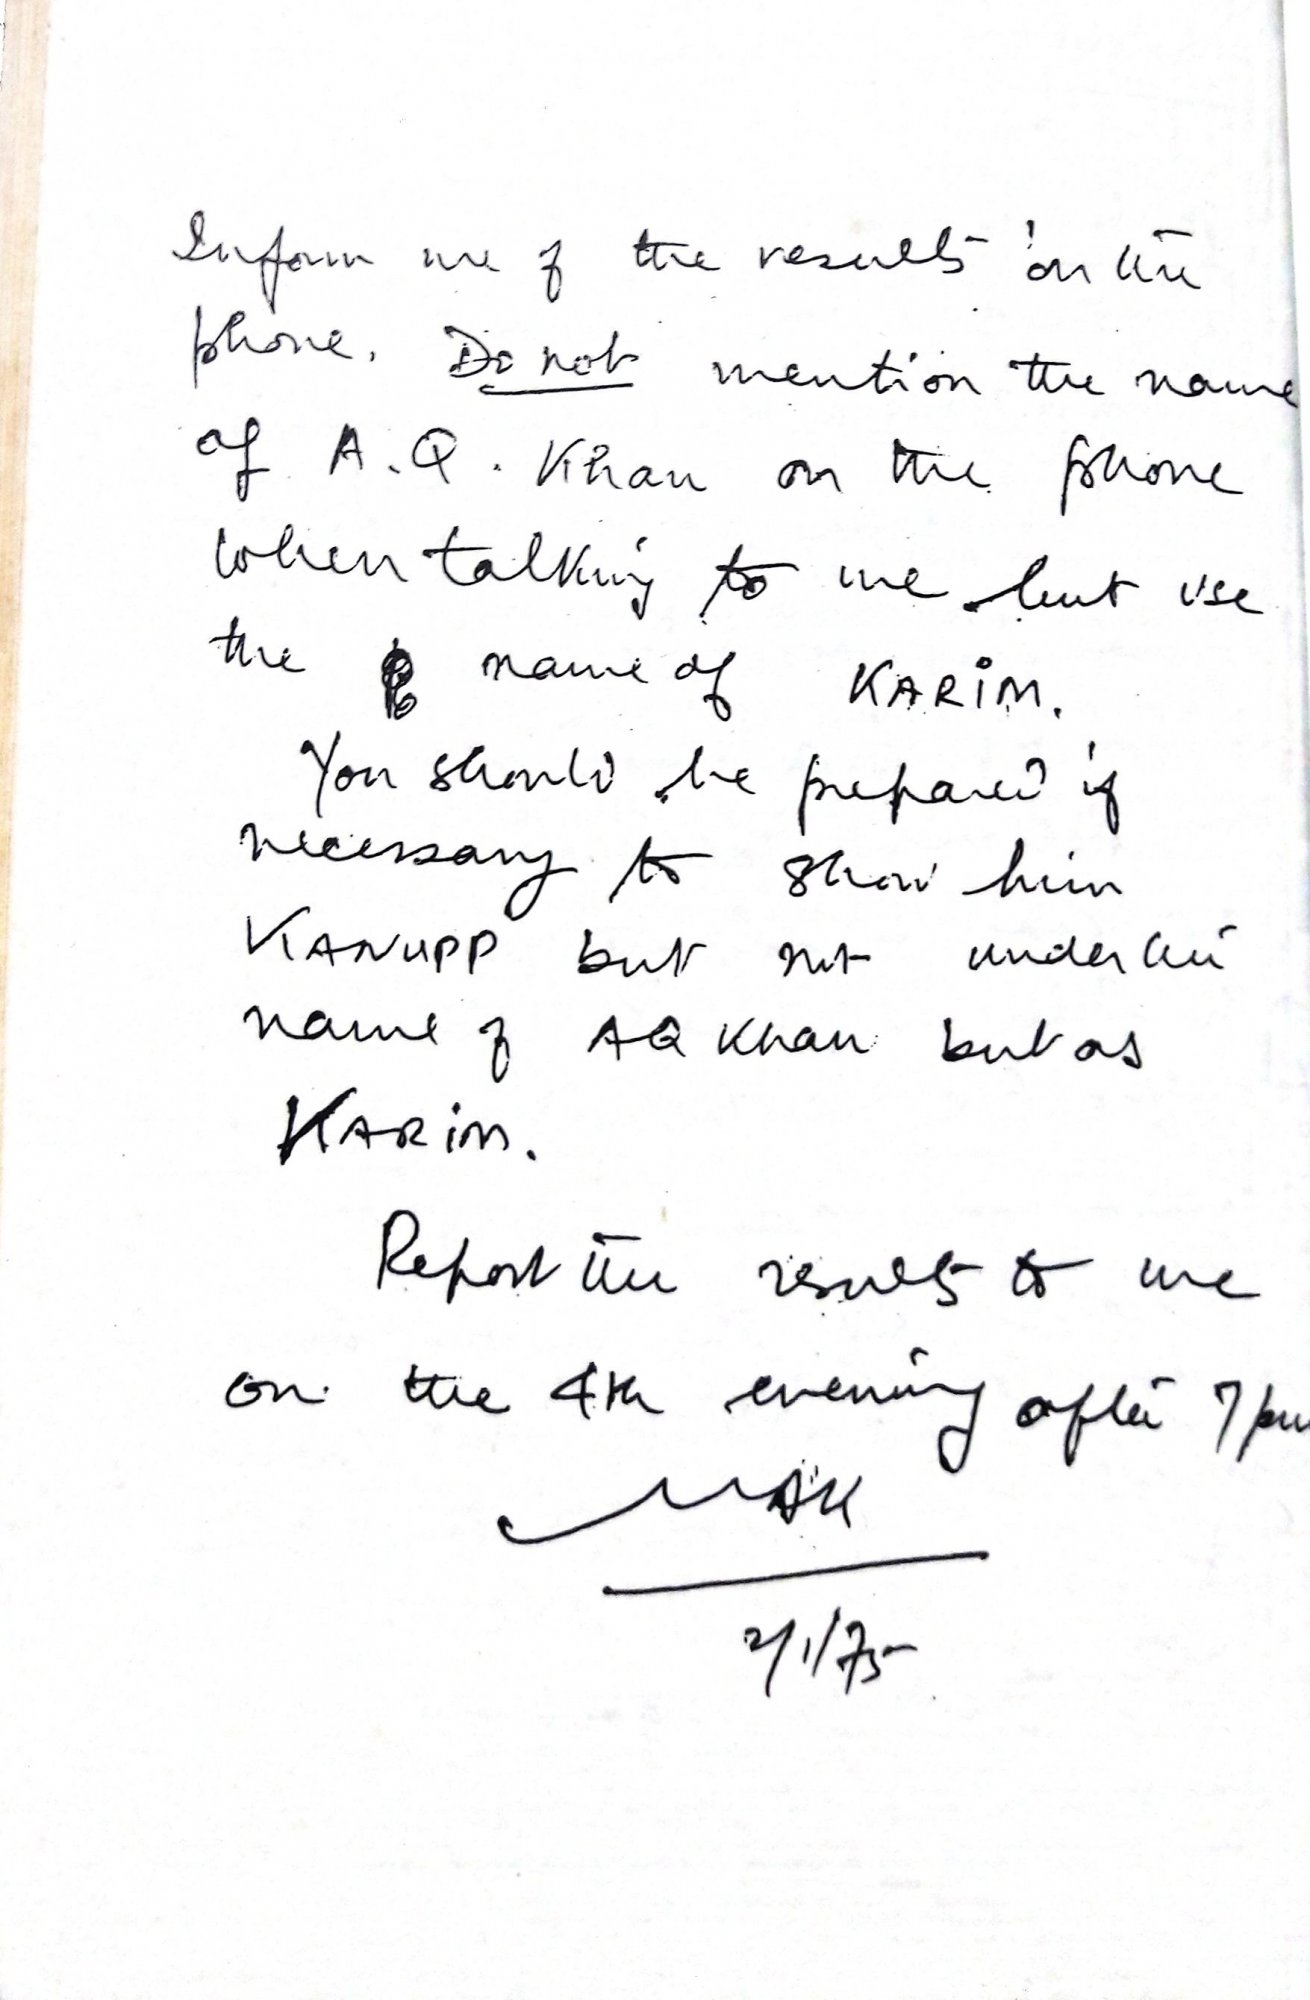 Inform me of the results on the
phone. Do not mention the name
of A.Q. Khan on the phone
when talking to me but use
the name of KARIM.
You should be prepared if
necessary to show him
KANUPP but not under the
name of AQ Khan but as
KARIM.
Report the results to me
on the 4th evening after 7 pm
MAK
2/1/75